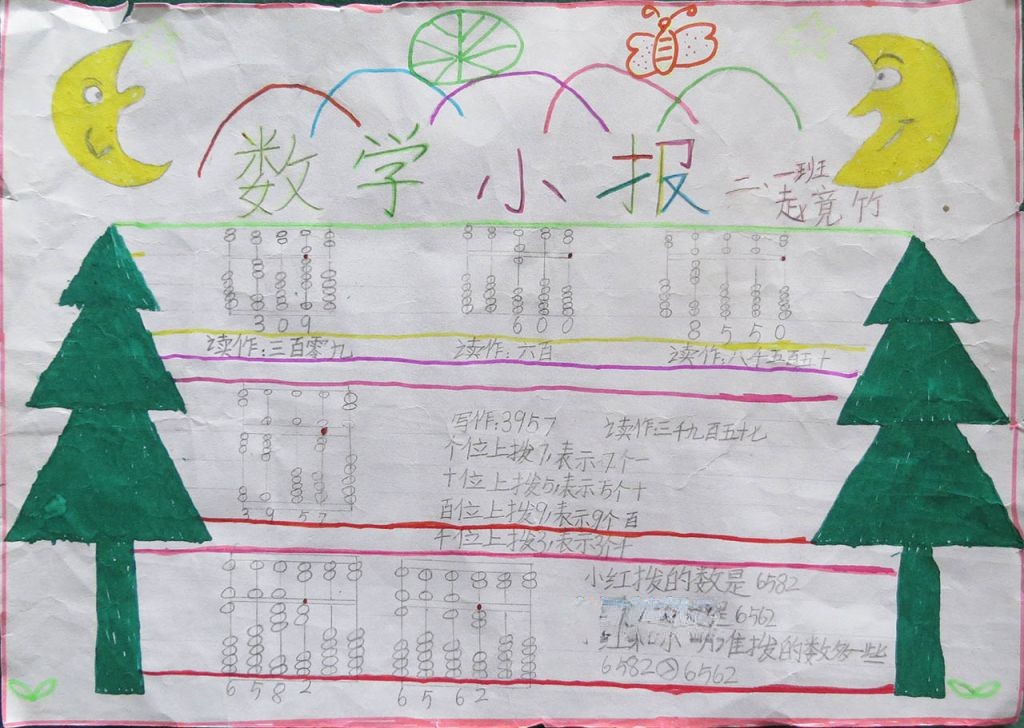 数学小报
二、一班
赵竟竹
309
600
8550
读作:三百零九
读作:六百
读作:八千五百五十
写作:3957
读作:三千九百五十七
个位上拨7,表示7个一
十位上拨5,表示5个十
百位上拨9,表示9个百
千位上拨3,表示3个千
3957
小红拨的数是6582
是6562
红和小明谁拨的数多一些
6582>6562
6582
6562